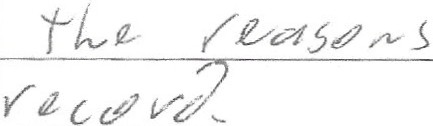 the reasons
record.